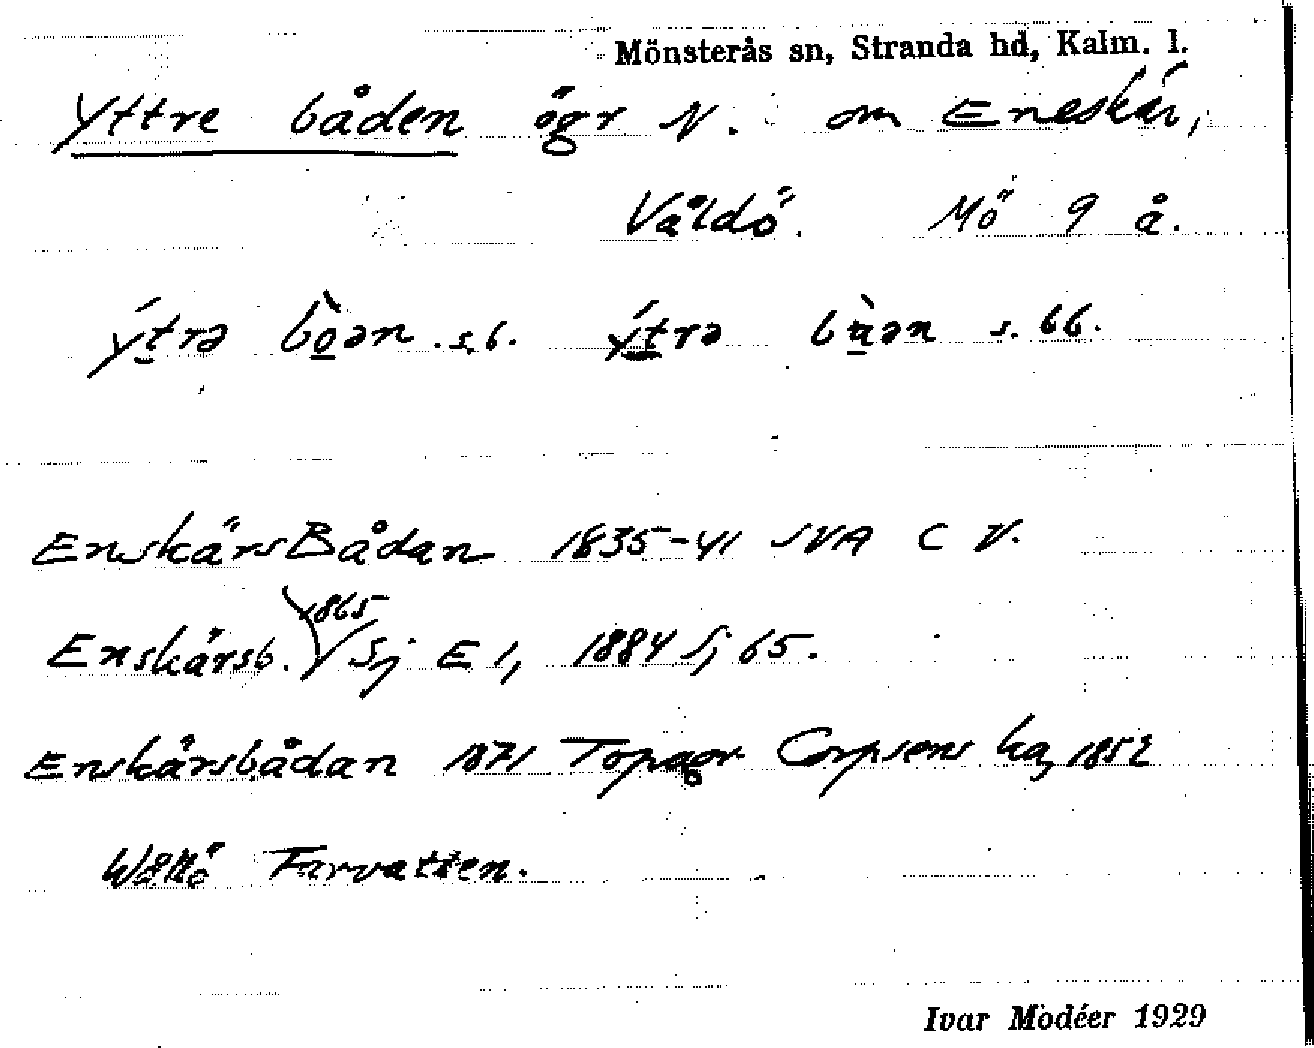 Mönsterås sn, Stranda hd, Kalm. l.
Yttre båden ögr N. om Eneskär,
Våldö. Mö 9 å.
ýtrə bòən s.b. ýtrə bùən s. bb.
EnskärsBådan 1835-41 SVA C V.
1865
Enskärsb. Sj E 1, 1884 Sj 65.
Enskärsbådan 1871 Topogr Corpsens ka, 1852
Wållö Farvatten.
Ivar Modéer 1929